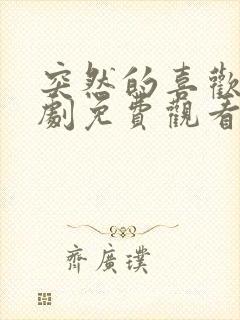 突然的喜歡
劇免費觀看
齊廣璞